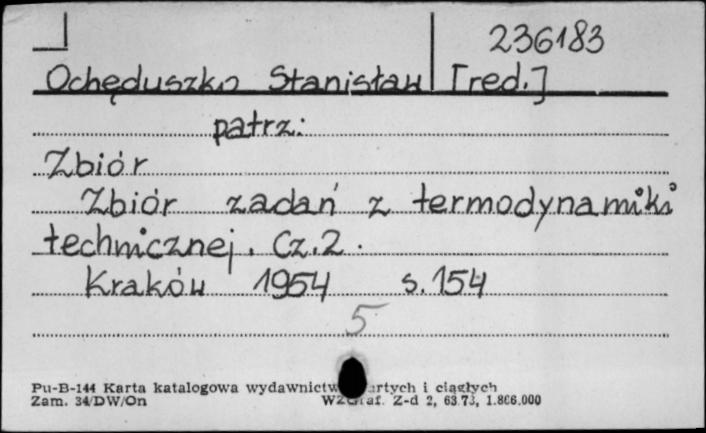 236183
Ochęduszko Stanisław [red.]
patrz:
Zbiór
Zbiór zadań z termodynamiki
technicznej. Cz.2.
Kraków 1954 s.154
5
Pu-B-144 Karta katalogowa wydawnictw i ciągłych
Zam. 34/DW/On Z-d 2, 63.73, 1.866.000